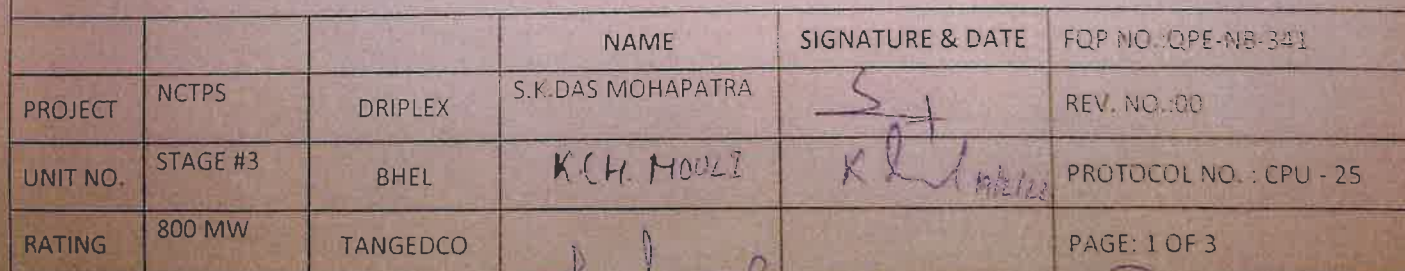 NAME SIGNATURE & DATE FQP NO.:QPE-NB-341
PROJECT NCTPS DRIPLEX S.K.DAS MOHAPATRA REV. NO.:00
UNIT NO. STAGE #3 BHEL K.CH. MOULI PROTOCOL NO. : CPU - 25
RATING 800 MW TANGEDCO PAGE: 1 OF 3